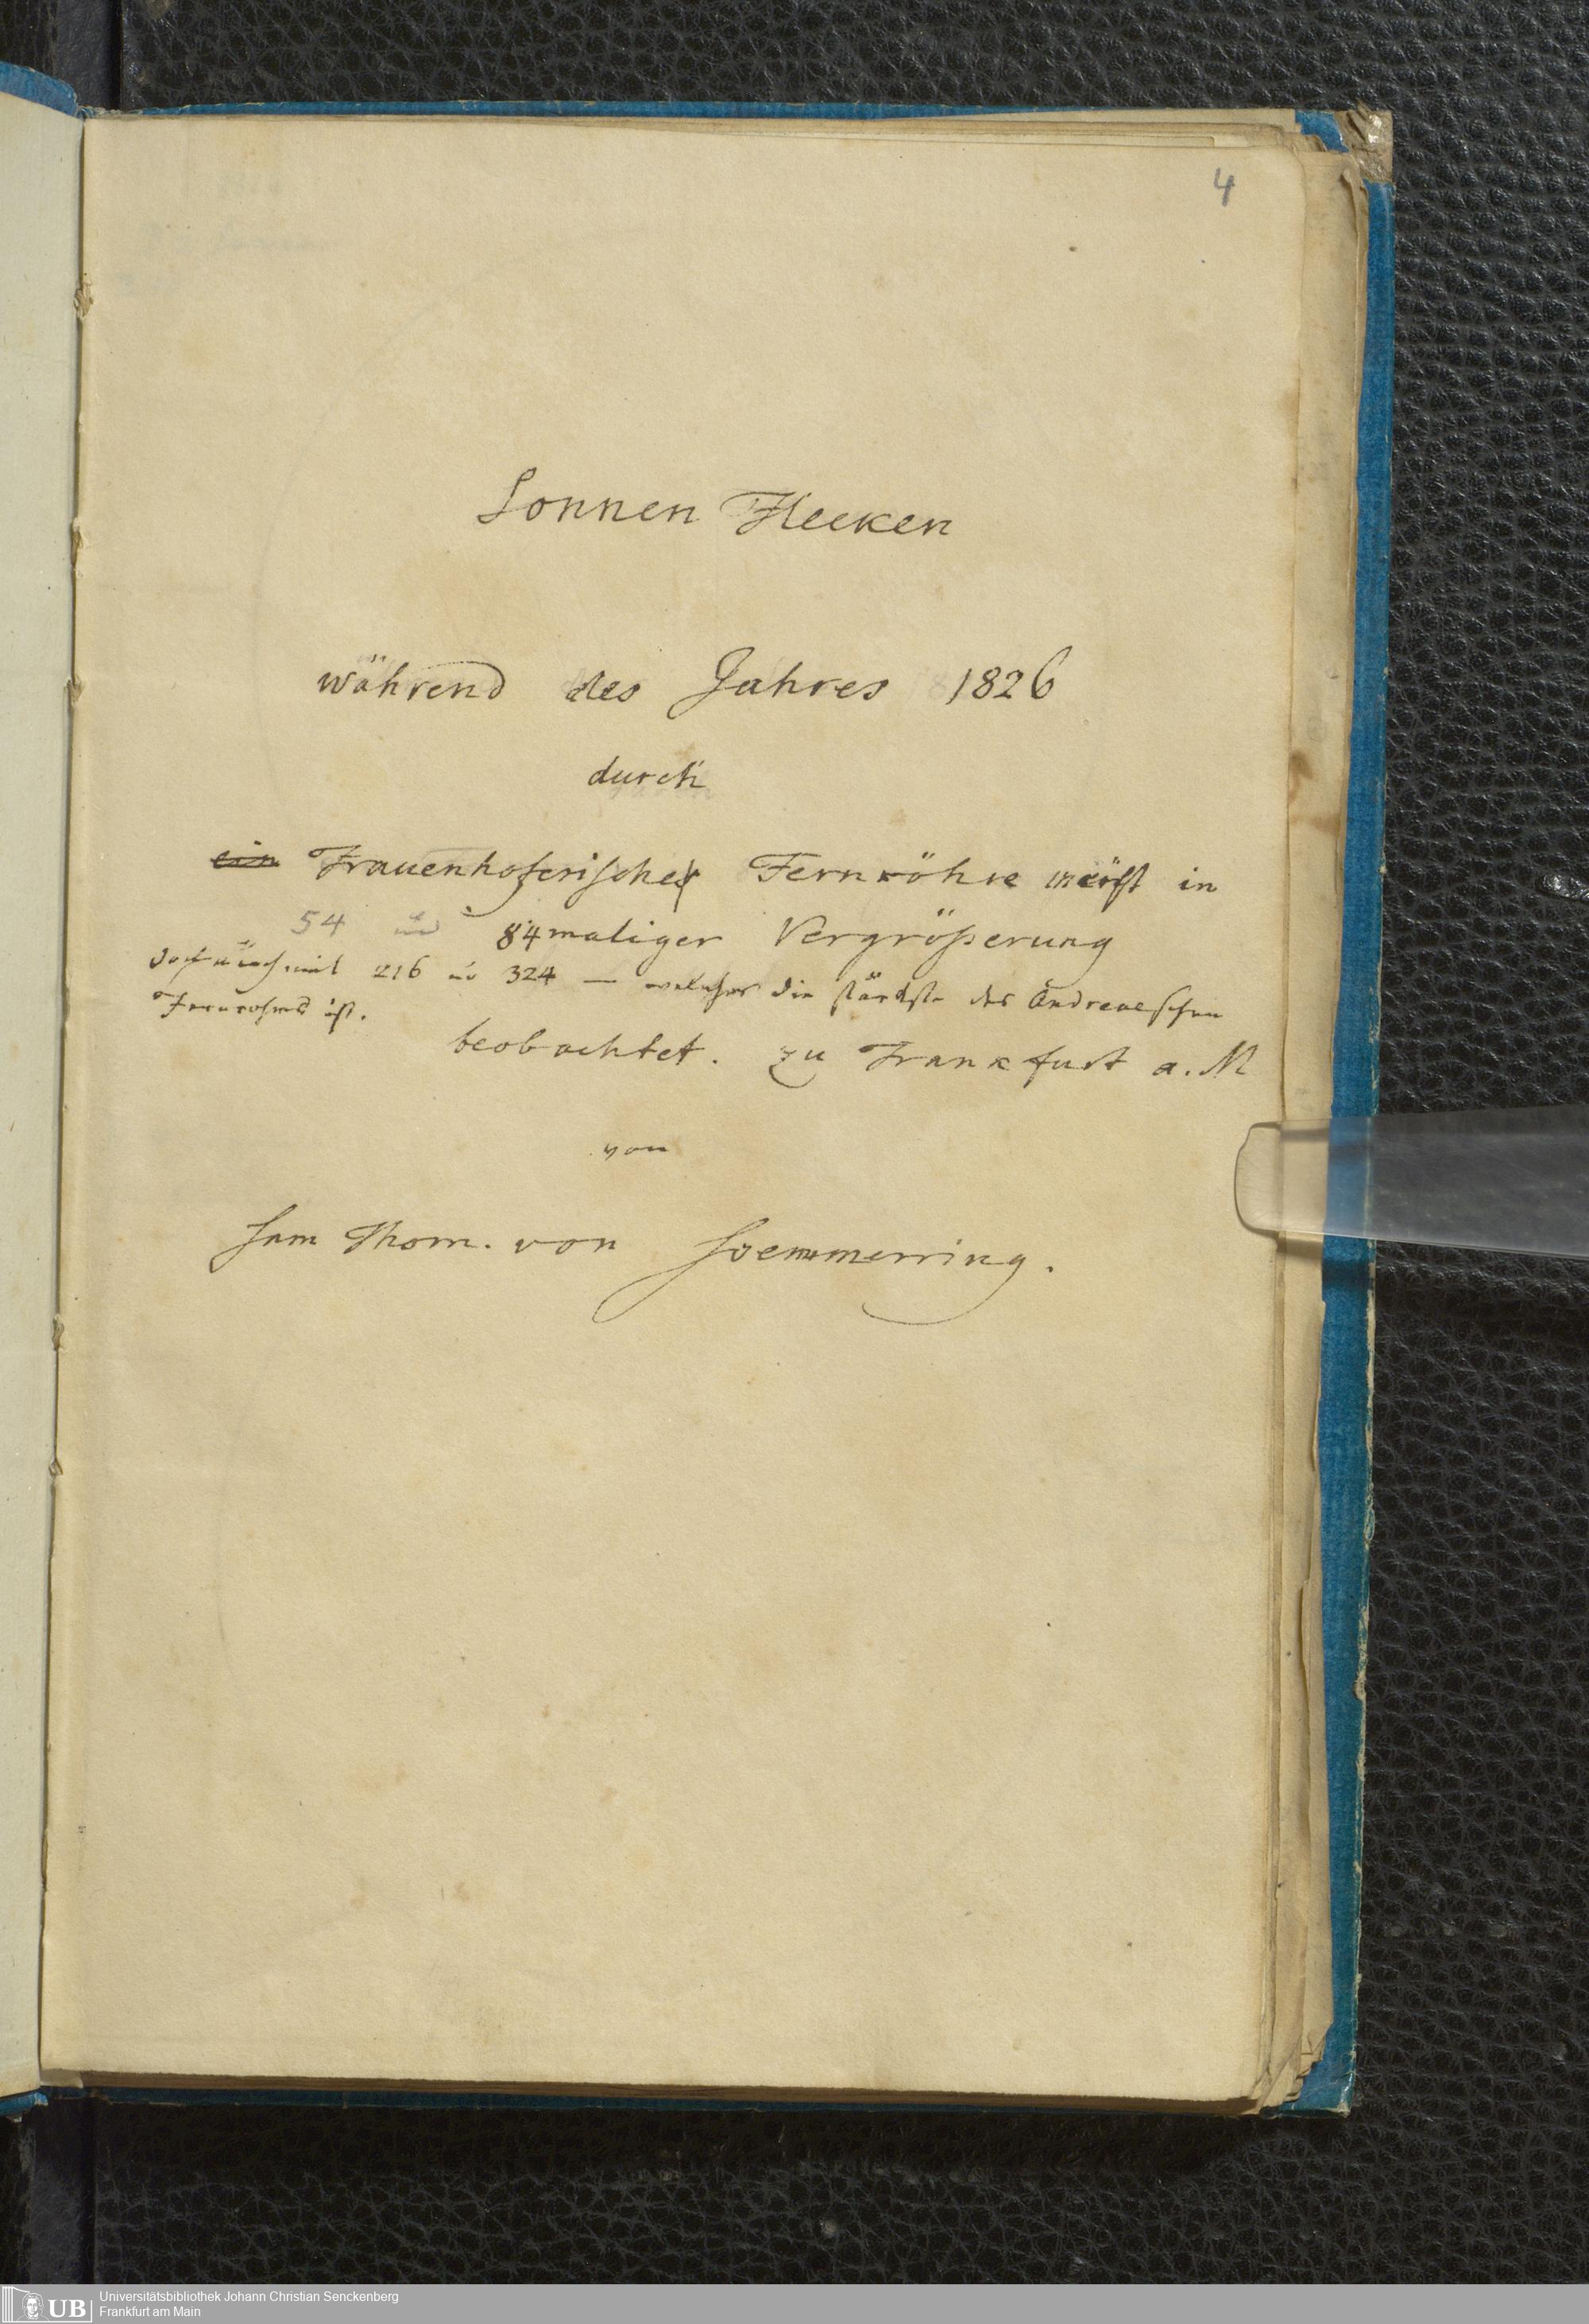 4
Sonnen Flecken
während des Jahres 1826
durch
ein Frauenhoferisches Fernröhre meist in
54 u 84maliger Vergrößerung
doch auch mit 216 u 324 — welches die stärkste des Andreaeschen
Fernrohres ist.
beobachtet. zu Frankfurt a. M
von
Sam Thom. von Soemmerring.
UB Universitätsbibliothek Johann Christian Senckenberg
Frankfurt am Main